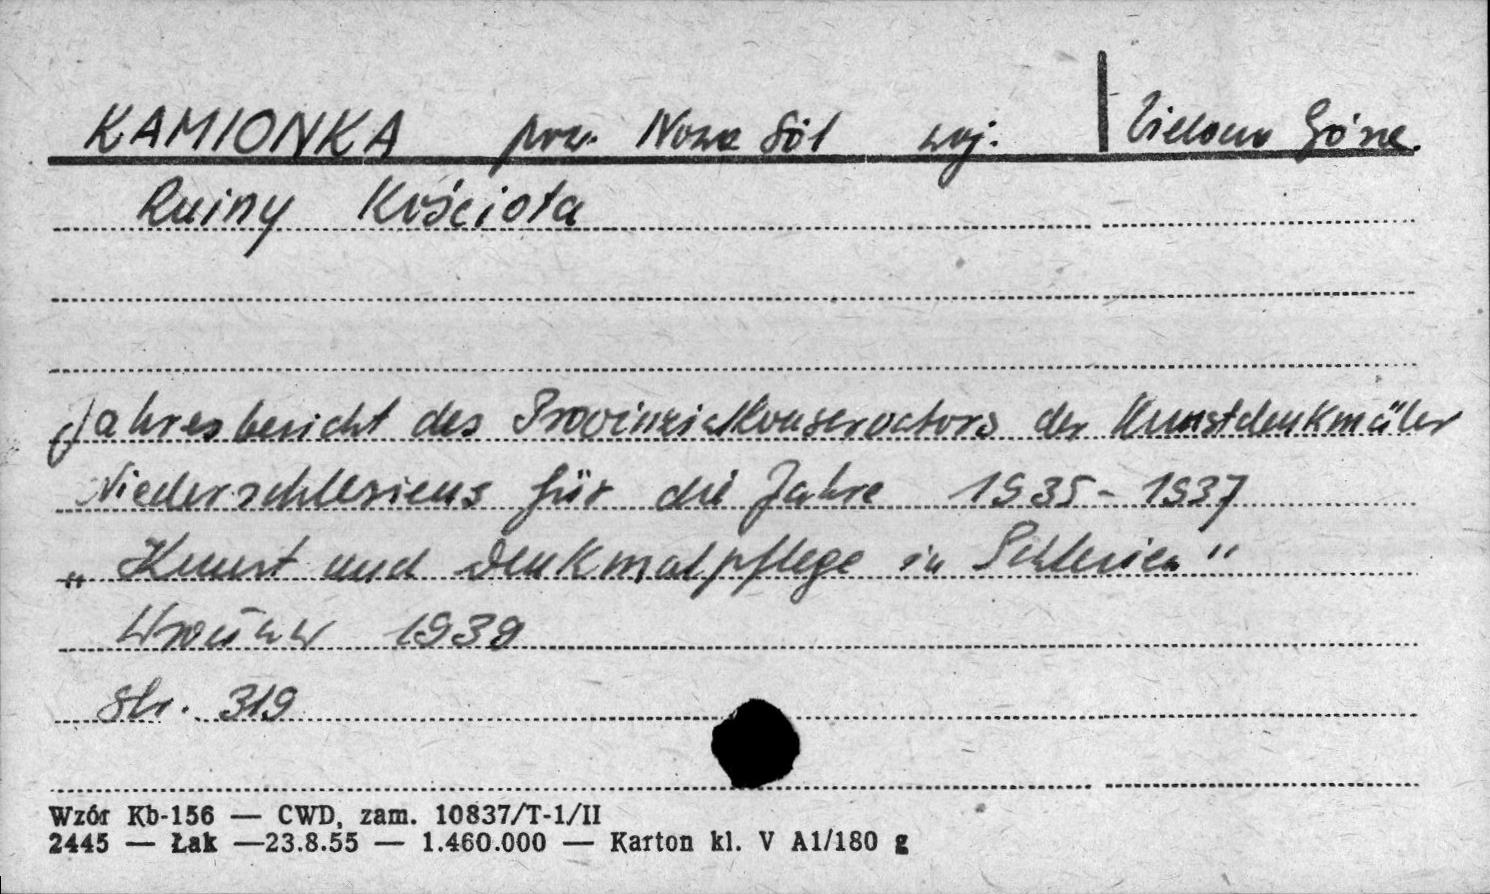 KAMIONKA pow. Nowa Sól woj. Zielona Góra.
Ruiny Kościoła
Jahresbericht des Provinzialkonservators der Kunstdenkmäler
Niederschlesiens für die Jahre 1935-1937
„Kunst und Denkmalpflege in Schlesien"
Wrocław 1939
str. 319
Wzór Kb-156 — CWD, zam. 10837/T-1/II
2445 — Łak —23.8.55 — 1.460.000 — Karton kl. V A1/180 g